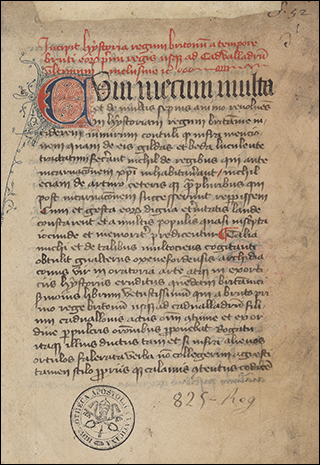 f. 52
Incipit hystoria regum britonum a tempore
bruti eorum primi regis usque ad Cadvalladrum
ultimum inclusive
Cum mecum multa
et de multis sepius animo revolvens
in hystoriam regum britannie in
ciderem in mirum contuli quod infra mencio
nem quam de eis gildas et beda luculento
tractatu fecerant nichil de regibus qui ante
incarnacionem xpi inhabitaverant / nichil
eciam de arturo ceteris que quam pluribus qui
post incarnacionem successerunt repperissem
Cum et gesta eorum digna eternitatis laude
constarent et a multis populis quasi inscripta
iocunde et memoriter predicentur Talia
michi et de talibus multociens cogitanti
obtulit gualterus oxenefordensis archidia
conus vir in oratoria arte atque in exoti
cis hystoriis eruditus quendam britannici
sermonis librum vetustissimum qui a bruto pri
mo rege britonum usque ad cadvalladrum fili
um cadvallonis actus omnium continue et ex or
dine perpulcris orationibus proponebat Rogatu
itaque illius ductus tam et si infra alienos
ortulos falerata verba non collegerim agresti
tamen stilo propriis que calamis contentus codicem
BIBLIOTHECA APOSTOLICA VATICANA
825 - Reg